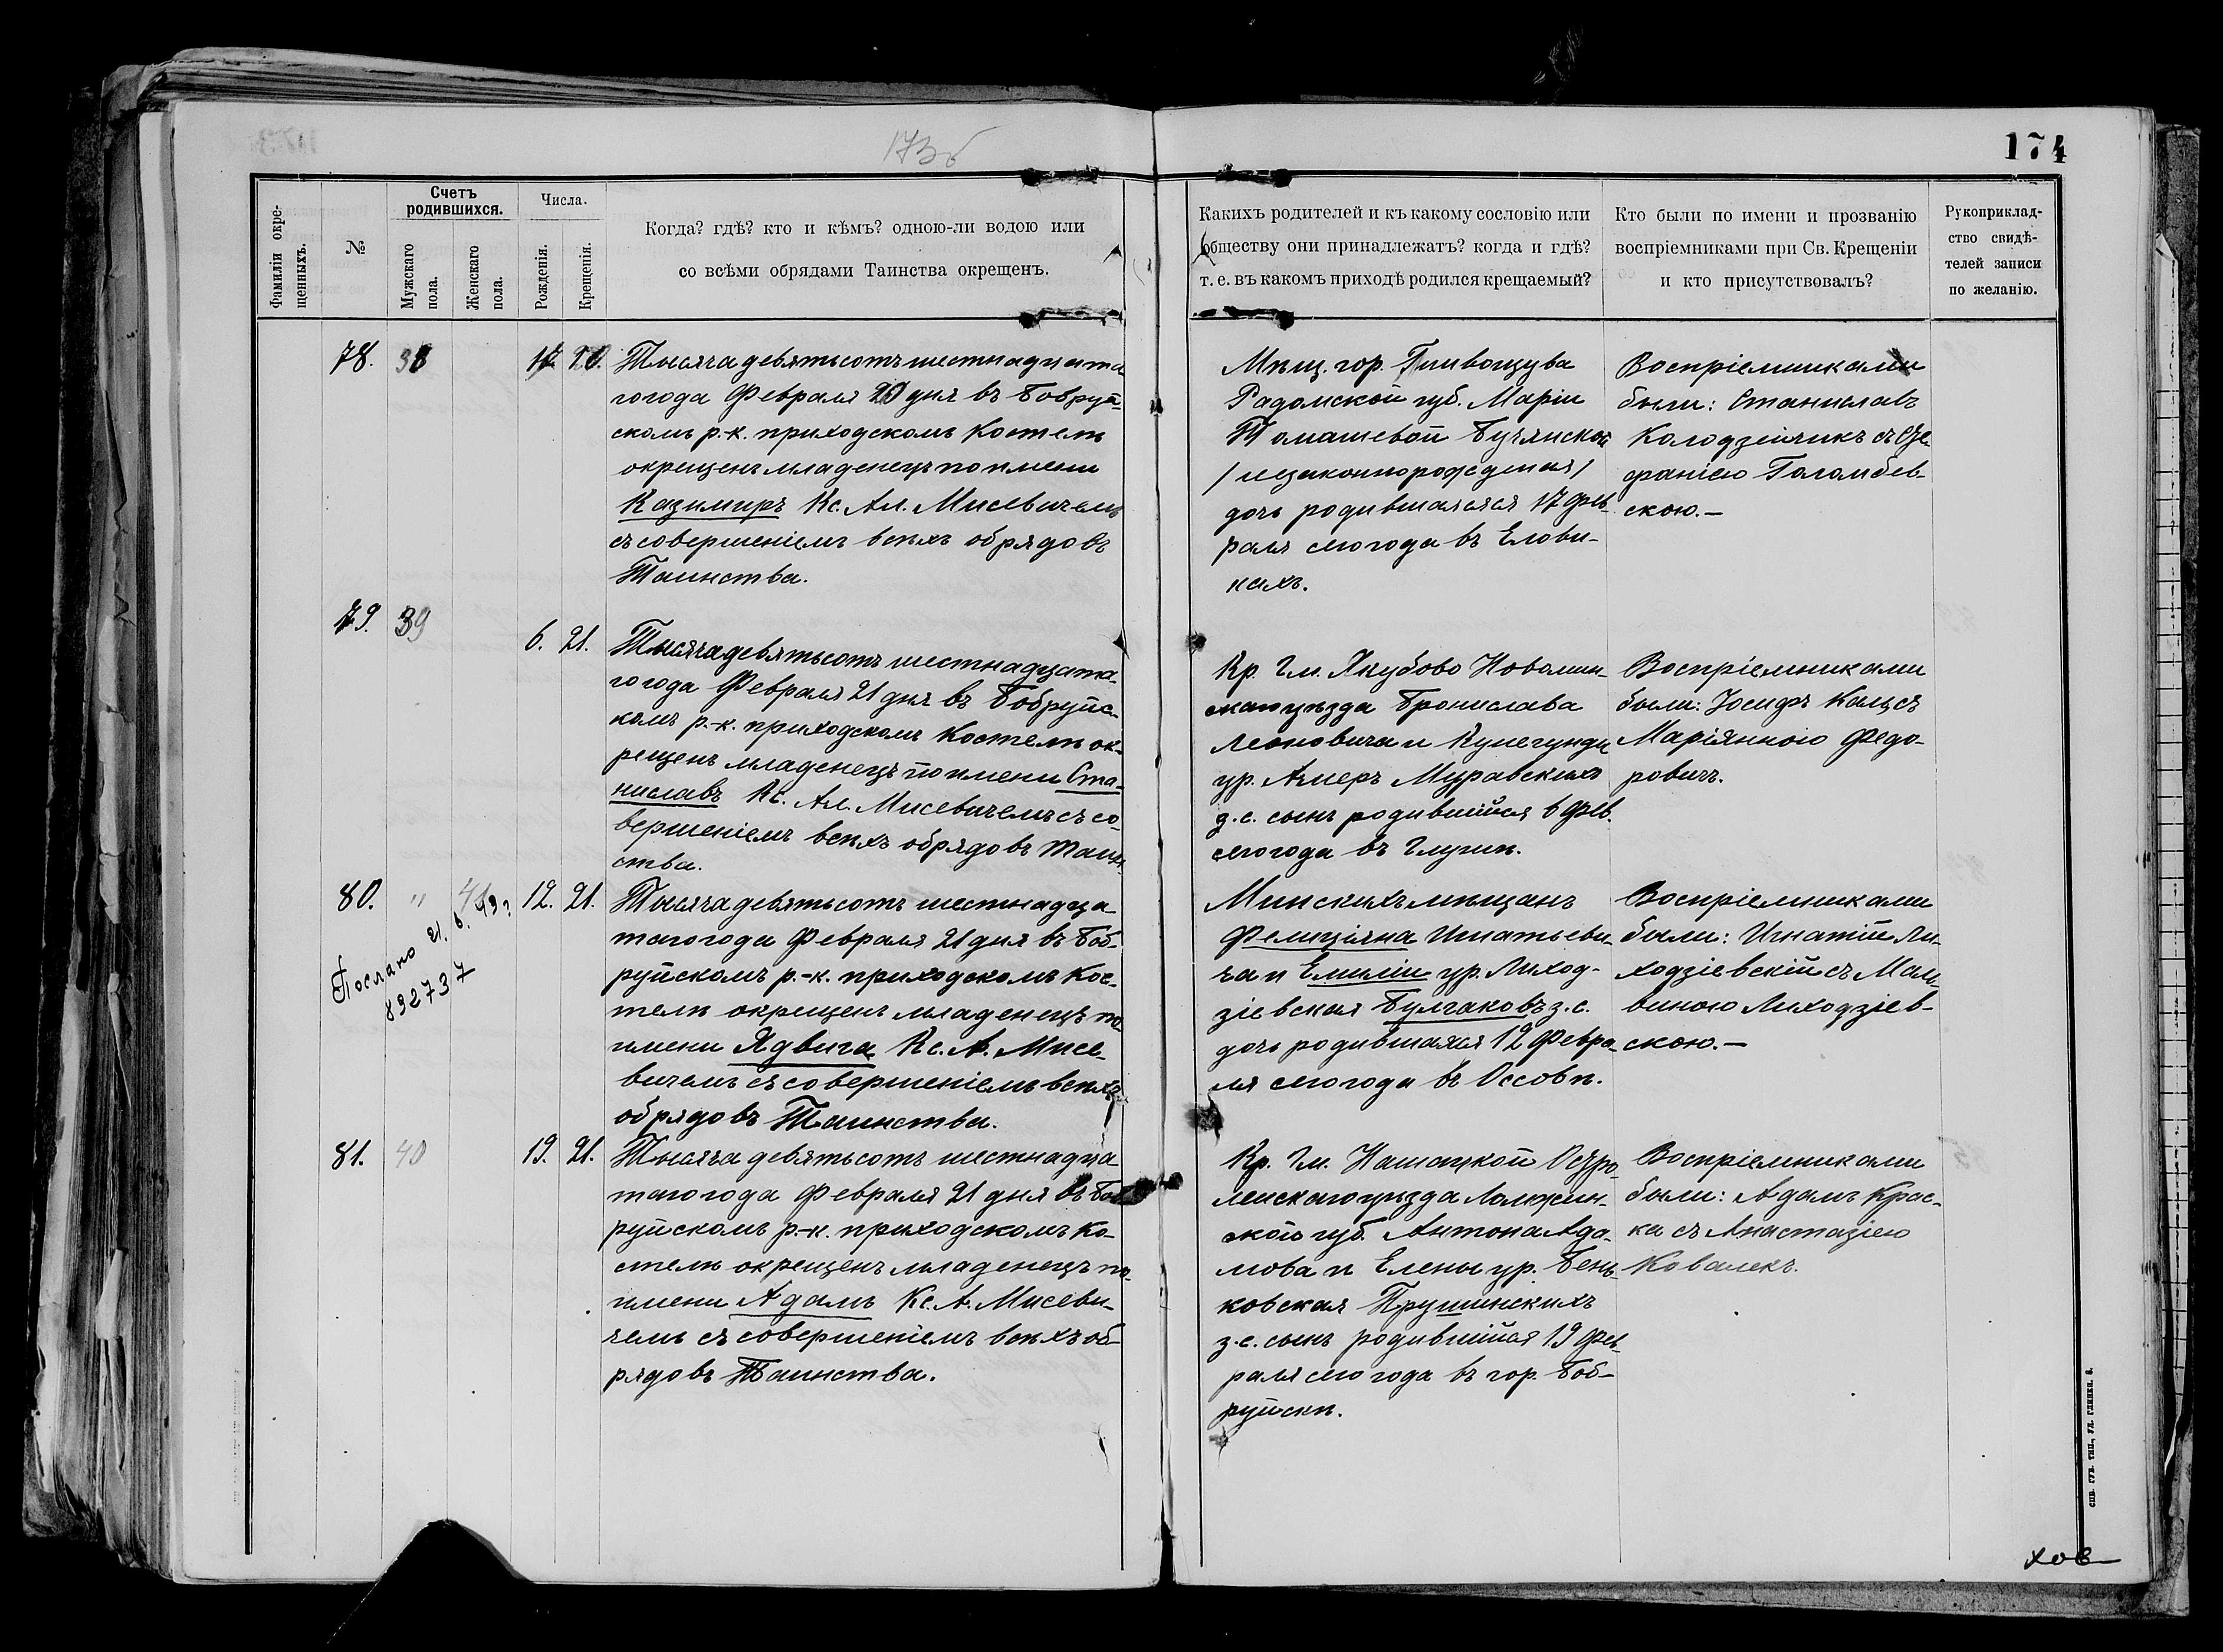 173б
174
Фамиліи окре-
щенныхъ.
№
Счетъ
родившихся.
Мужскаго
пола.
Женскаго
пола.
Числа.
Рожденія.
Крещенія.
Когда? гдѣ? кто и кѣмъ? одною-ли водою или
со всѣми обрядами Таинства окрещенъ.
Какихъ родителей и къ какому сословію или
обществу они принадлежатъ? когда и гдѣ?
т. е. въ какомъ приходѣ родился крещаемый?
Кто были по имени и прозванію
воспріемниками при Св. Крещеніи
и кто присутствовалъ?
Рукоприклад-
ство свидѣ-
телей записи
по желанію.
78. 38 17. 20.
Тысяча девятьсотъ шестнадцата
го года Февраля 20 дня въ Бобруй-
скомъ р.-к. приходскомъ Костелѣ
окрещенъ младенецъ по имени
Казимиръ Кс. Ал. Мисевичемъ
съ совершеніемъ всѣхъ обрядовъ
Таинства.
Мѣщ. гор.
Радомской губ. Маріи
Томашевой Бугянской
/незаконнорожденная/
дочь родившаяся 17 Фев-
раля сего года въ Елови-
кахъ.
Воспріемниками
были: Станиславъ
Колодзейчикъ съ Сте-
фаніею Голомбев-
скою.—
79. 39
6. 21.
Тысяча девятьсотъ шестнадцата-
го года Февраля 21 дня въ Бобруйс-
комъ р.-к. приходскомъ Костелѣ ок-
рещенъ младенецъ по имени Ста-
ниславъ Кс. Ал. Мисевичемъ съ со-
вершеніемъ всѣхъ обрядовъ Таин-
ства.
Кр. Гм. Якубово Новомин-
скаго уѣзда Бронислава
Леоновича и Кунегунды
ур. Ахмеръ Муравскихъ
з. с. сынъ родившійся 6 Фев.
сего года въ Глушѣ.
Воспріемниками
были: Іосифъ Кацъ съ
Маріянною Федо-
ровичъ.
80. " 41 12. 21.
Послано 21. 6. 49 г
892737
Тысяча девятьсотъ шестнадца-
таго года Февраля 21 дня въ Боб-
руйскомъ р.-к. приходскомъ Кос-
телѣ окрещенъ младенецъ по
имени Ядвига Кс. А. Мисе-
вичемъ съ совершеніемъ всѣхъ
обрядовъ Таинства.
Минскихъ мѣщанъ
Фелиціяна Игнатьеви-
ча и Емиліи ур. Лиход-
зіевская Булгаковъ з. с.
дочь родившаяся 12 Февра-
ля сего года въ Оссовѣ.
Воспріемниками
были: Игнатій Ли-
ходзіевскій съ Маль-
виною Лиходзіев-
скою.—
81. 40 19. 21.
Тысяча девятьсотъ шестнадца
таго года Февраля 21 дня въ Боб
руйскомъ р.-к. приходскомъ Ко-
стелѣ окрещенъ младенецъ по
имени Адамъ Кс. А. Мисеви-
чемъ съ совершеніемъ всѣхъ об-
рядовъ Таинства.
Кр. Гм. Остро-
ленскаго уѣзда Ломжин-
ской губ. Антона Ада-
мова и Елены ур. Бень-
ковская Прушинскихъ
з. с. сынъ родившійся 19 Фев-
раля сего года въ гор. Боб-
руйскѣ.
Воспріемниками
были: Адамъ Крас-
ка съ Анастазіею
Ковалекъ.
СПБ. ГУБ. ТИП., УЛ. ГЛИНКИ. 6.